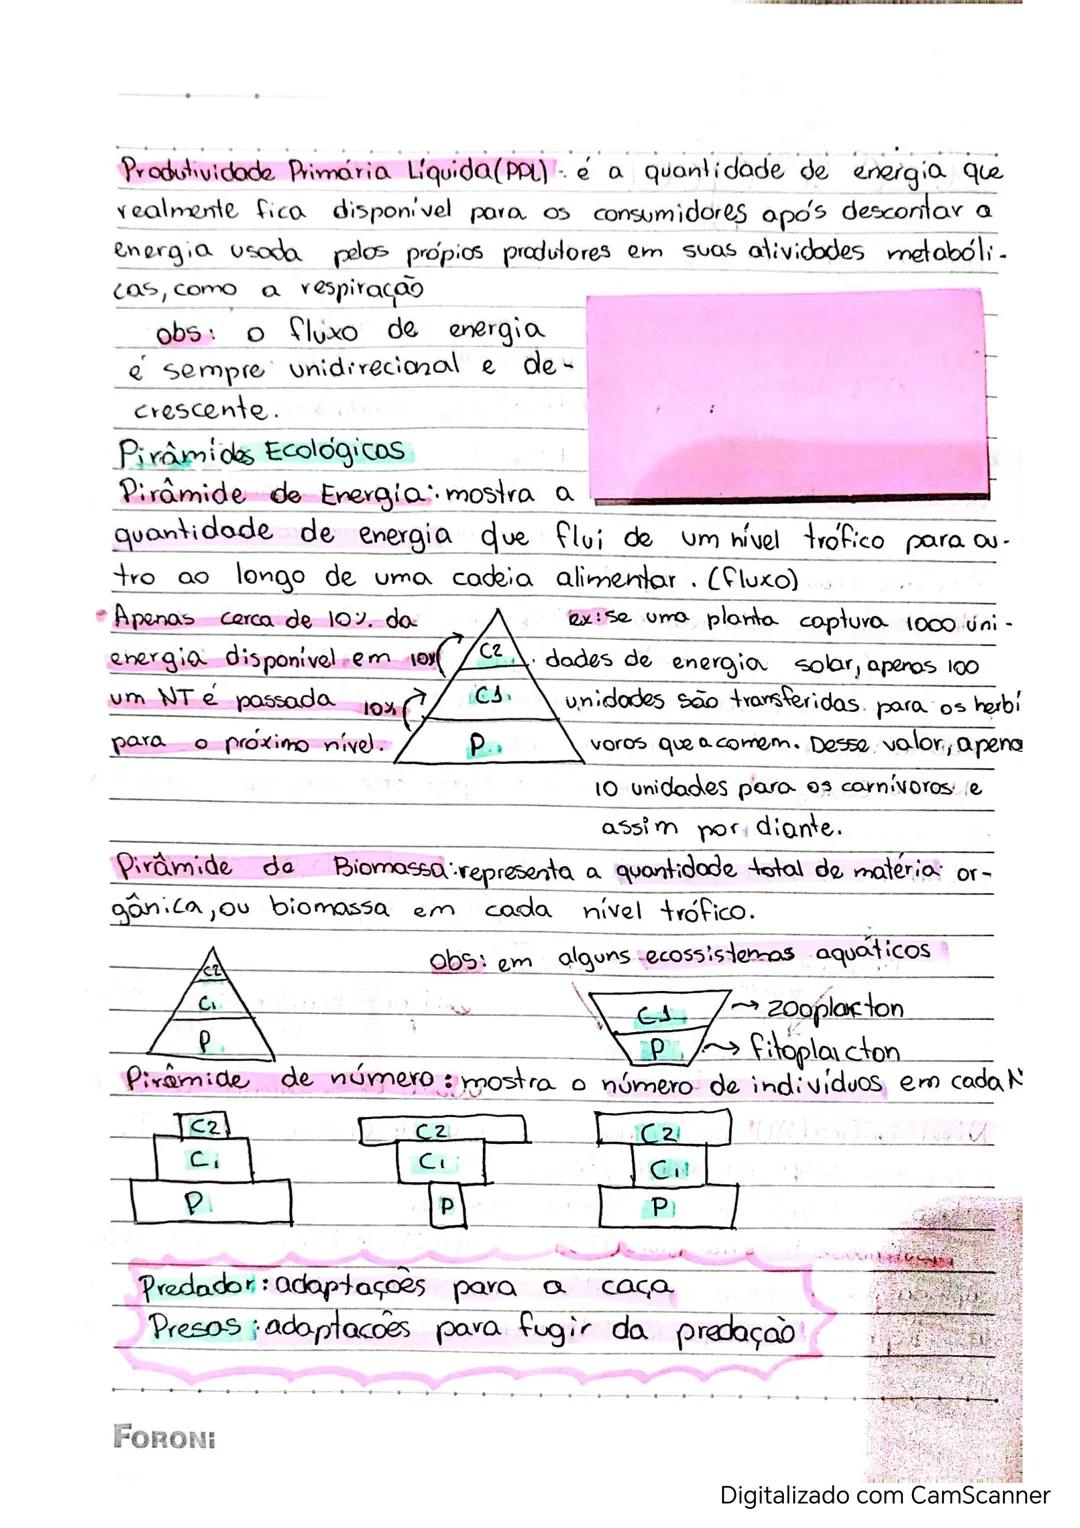 Produtividade Primária Líquida (PPL) - é a quantidade de energia que
realmente fica disponível para os consumidores após descontar a
energia usada pelos própios produtores em suas atividades metabóli-
cas, como a respiração
obs: o fluxo de energia
é sempre unidirecional e de-
crescente.
Pirâmides Ecológicas
Pirâmide de Energia: mostra a
quantidade de energia que flui de um nível trófico para ou-
tro ao longo de uma cadeia alimentar. (fluxo)
Apenas cerca de 10% da
energia disponível em
um NT é passada
para o próximo nível.
10%
10%
C2
C1
P
ex: se uma planta captura 1000 uni-
dades de energia solar, apenas 100
unidades são transferidas para os herbí
voros que a comem. Desse valor, apena
10 unidades para os carnívoros e
assim por diante.
Pirâmide de Biomassa: representa a quantidade total de matéria or-
gânica, ou biomassa em cada nível trófico.
obs: em alguns ecossistemas aquáticos
C2
C1
P
C1 → zooplancton
P → fitoplancton
Pirâmide de número: mostra o número de indivíduos em cada N
C2 C2 C2
C1 C1 C1
P P P
Predador: adaptações para a caça
Presas: adaptacões para fugir da predação
FORONI
Digitalizado com CamScanner